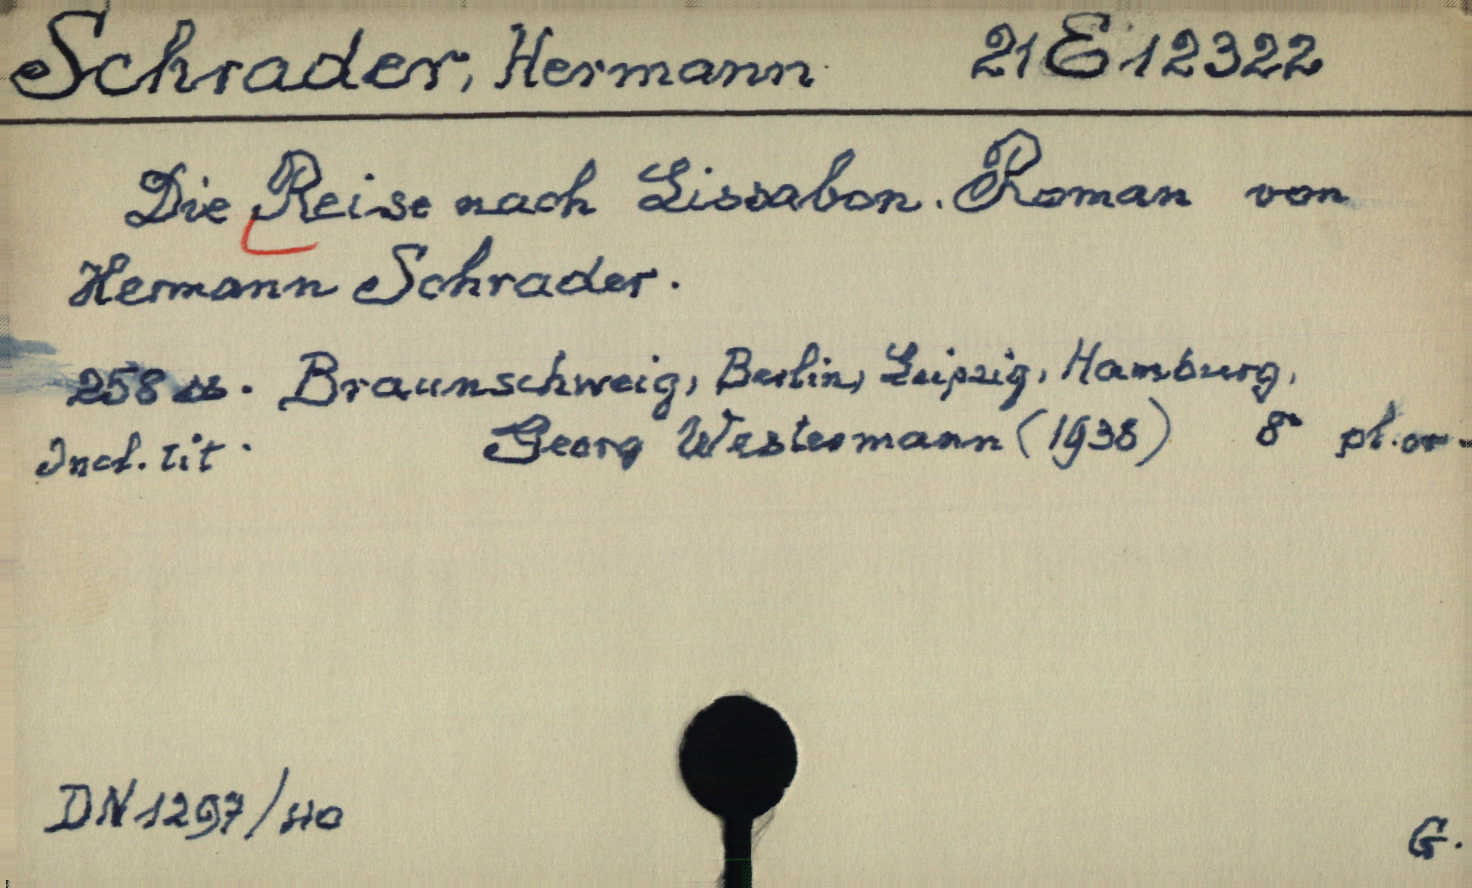 Schrader, Hermann 21 E 12322
Die Reise nach Lissabon. Roman von
Hermann Schrader.
258 s. Braunschweig, Berlin, Leipzig, Hamburg,
Incl. tit. Georg Westermann (1938) 8° pl. or.
DN 1297/40
G.